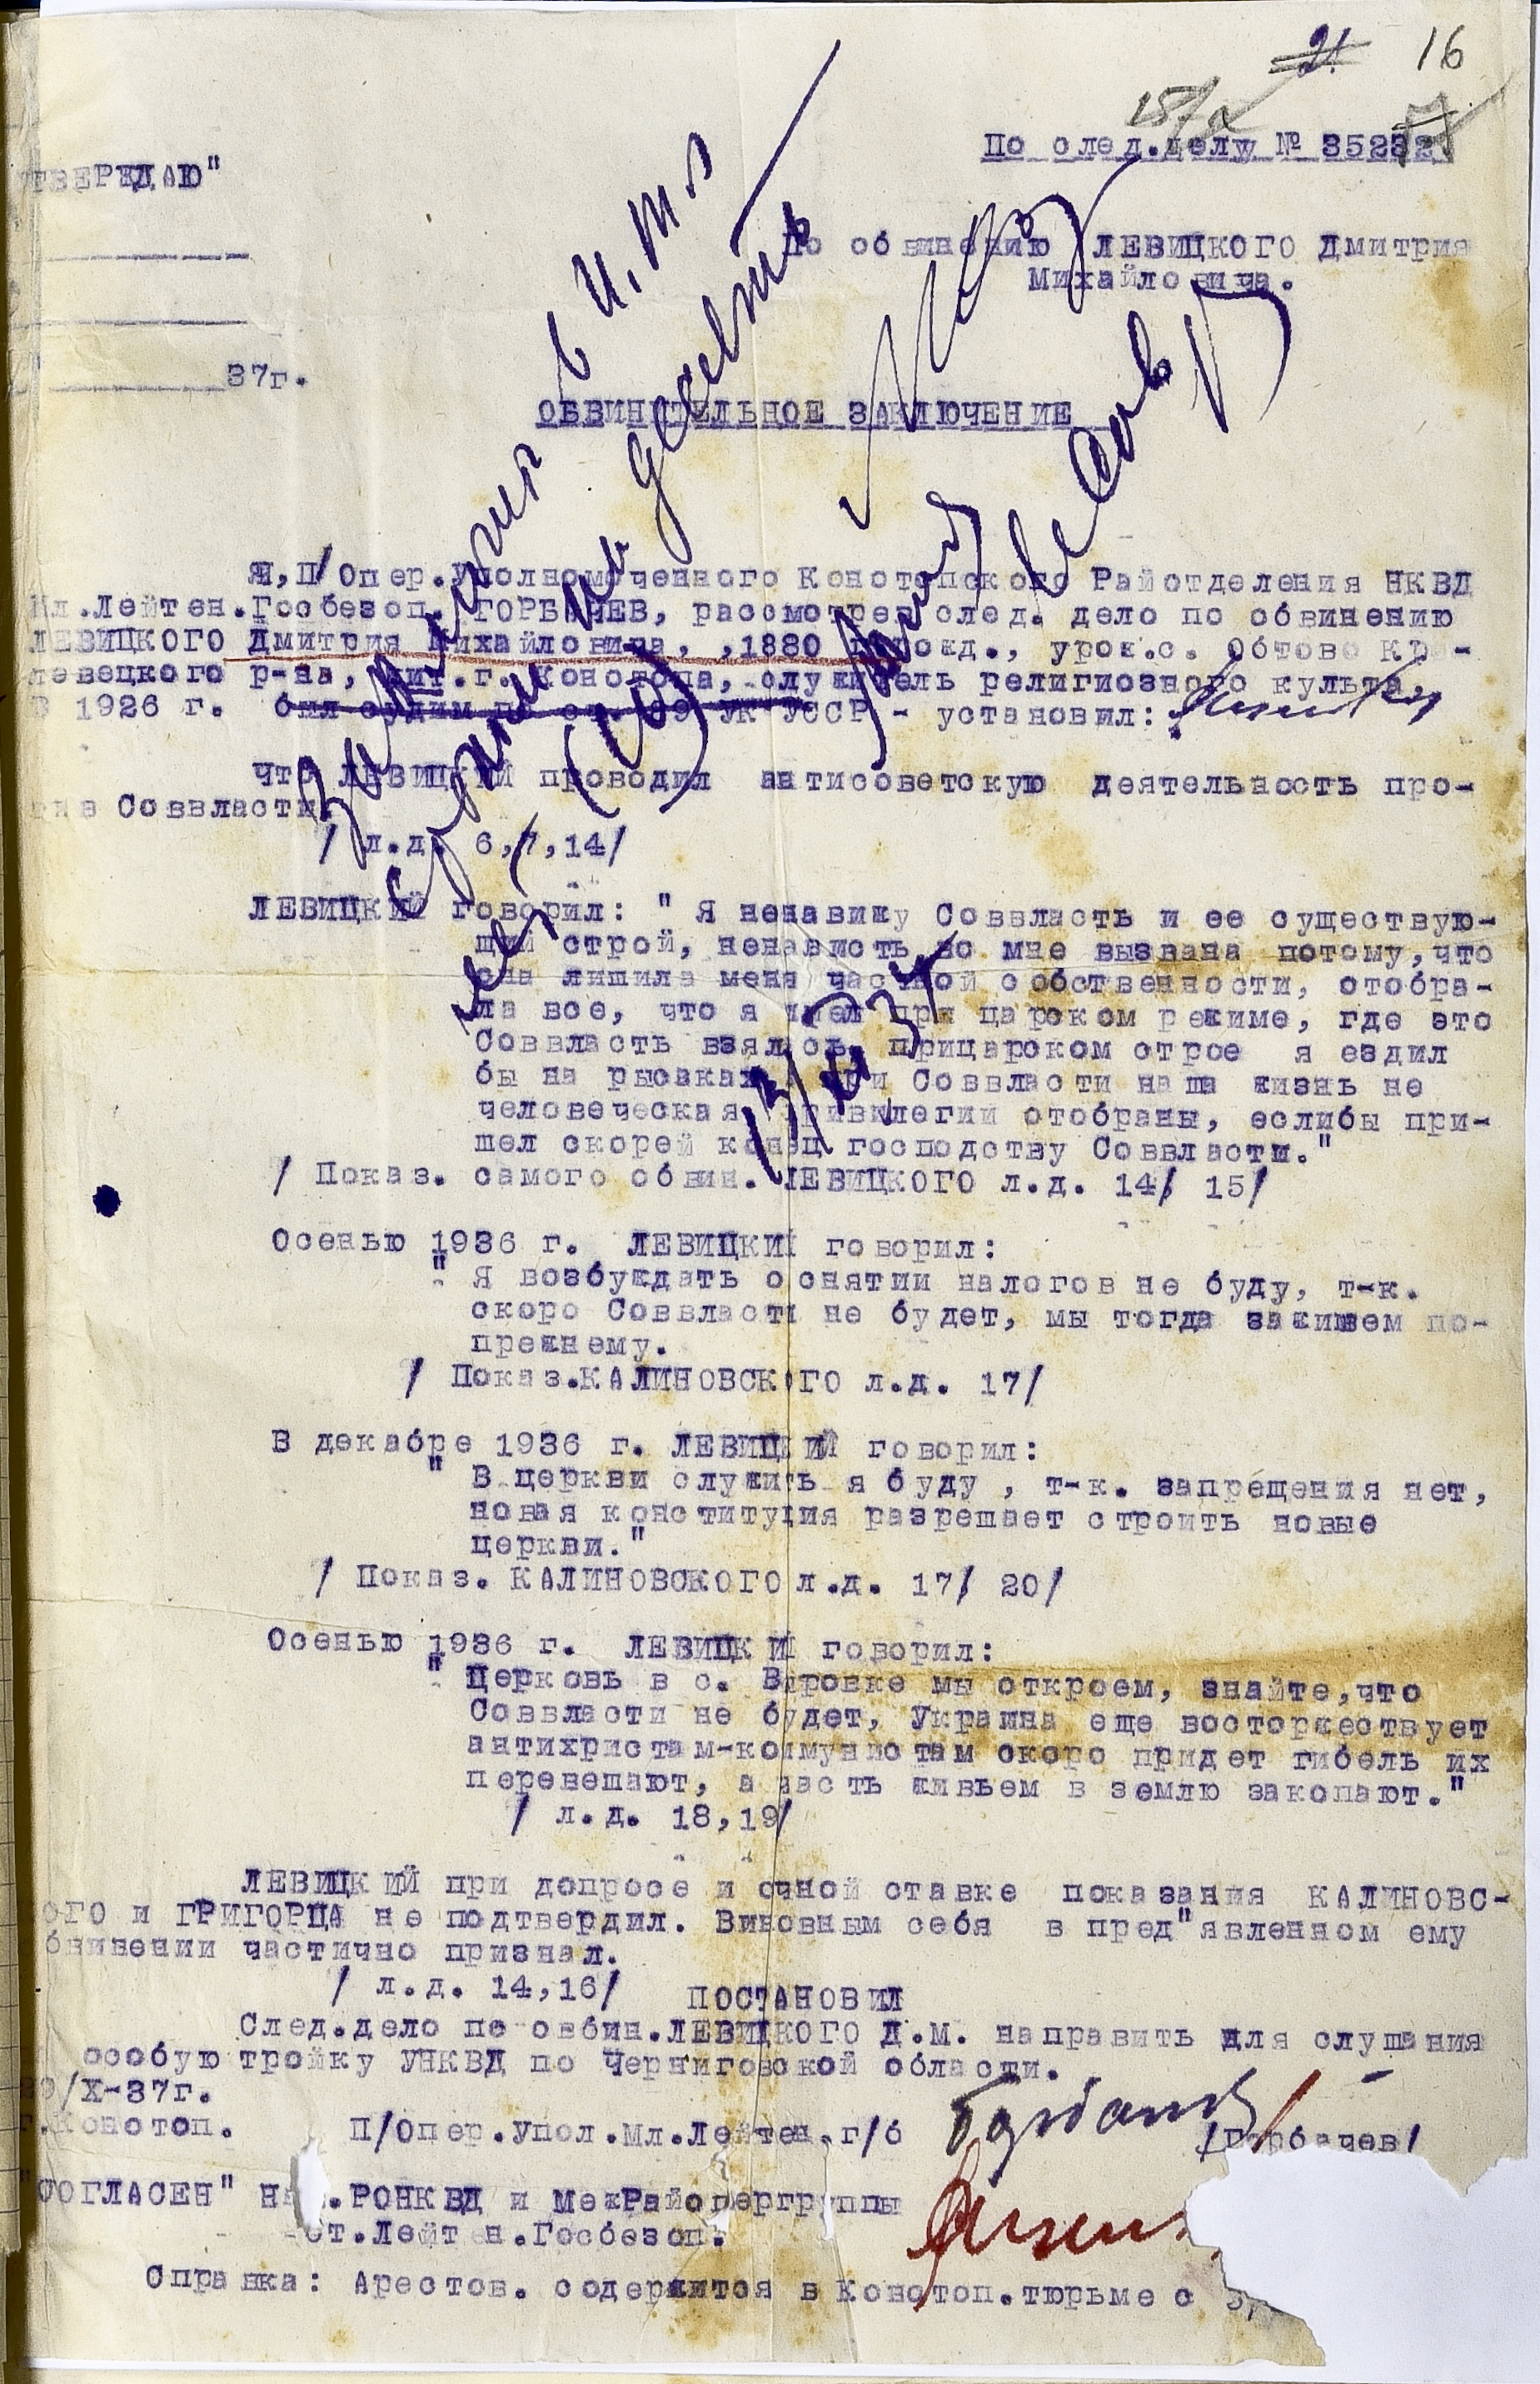 21 16
По след.делу № 35232
ТВЕРЖДАЮ"
По обвинению ЛЕВИЦКОГО Дмитрия
Михайловича.
37г.
в И.Т.Л
десять
ОБВИНИТЕЛЬНОЕ ЗАКЛЮЧЕНИЕ
Я, П/Опер.Уполномоченного Конотопского Райотделения НКВД
Мл.Лейтен.Госбезоп. ГОРБАЧЕВ, рассмотрев след. дело по обвинению
ЛЕВИЦКОГО Дмитрия Михайловича, ,1880 г.рожд., урож.с. Обтово Кро-
левецкого р-на, жит.г. Конотопа, служитель религиозного культа,
В 1926 г. был судим по ст. 99 УК УССР - установил:
что ЛЕВИЦКИЙ проводил антисоветскую деятельность про-
тив Соввласти.
/ л.д. 6,7,14/
ЛЕВИЦКИЙ говорил: " Я ненавижу Соввласть и ее существую-
щий строй, ненависть во мне вызвана потому,что
она лишила меня частной собственности, отобра-
ла все, что я имел при царском режиме, где это
Соввласть взялась, прицарском строе я ездил
бы на рысаках, а при Соввласти наша жизнь не
человеческая привилегии отобраны, еслибы при-
шел скорей конец господству Соввласти."
/ Показ. самого обвин. ЛЕВИЦКОГО л.д. 14/ 15/
Осенью 1936 г. ЛЕВИЦКИЙ говорил:
" Я возбуждать о снятии налогов не буду, т-к.
скоро Соввласти не будет, мы тогда заживем по-
прежнему.
/ Показ.КАЛИНОВСКОГО л.д. 17/
В декабре 1936 г. ЛЕВИЦКИЙ говорил:
" В церкви служить я буду , т-к. запрещения нет,
новая конституция разрешает строить новые
церкви."
/ Показ. КАЛИНОВСКОГО л.д. 17/ 20/
Осенью 1936 г. ЛЕВИЦКИЙ говорил:
" Церковь в с. Вировке мы откроем, знайте,что
Соввласти не будет, Украина еще восторжествует
антихристам-коммунистам скоро придет гибель их
перевешают, а часть живьем в землю закопают."
/ л.д. 18,19/
ЛЕВИЦКИЙ при допросе и очной ставке показания КАЛИНОВС-
ОГО и ГРИГОРЦА не подтвердил. Виновным себя в пред"явленном ему
бвинении частично признал.
/ л.д. 14,16/ ПОСТАНОВИЛ
След.дело по овбин.ЛЕВИЦКОГО Д.М. направить для слушания
особую тройку УНКВД по Черниговской области.
/Х-37г.
г.Конотоп. П/Опер.Упол.Мл.Лейтен.г/б /Горбачев/
"СОГЛАСЕН" НАЧ.РОНКВД и МежРайопергруппы
Ст.Лейтен.Госбезоп.
Справка: Арестов. содержится в Конотоп.тюрьме с